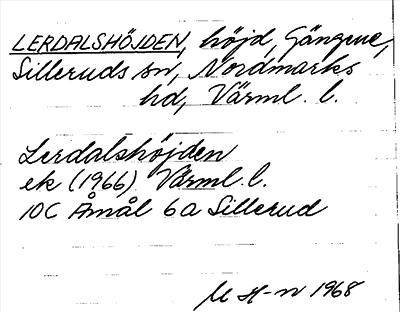 LERDALSHÖJDEN, höjd, Gängene,
Silleruds sn, Nordmarks
hd, Värml. l.
Lerdalshöjden
ek (1966) Värml. l.
10C Åmål 6a Sillerud
M H-n 1968